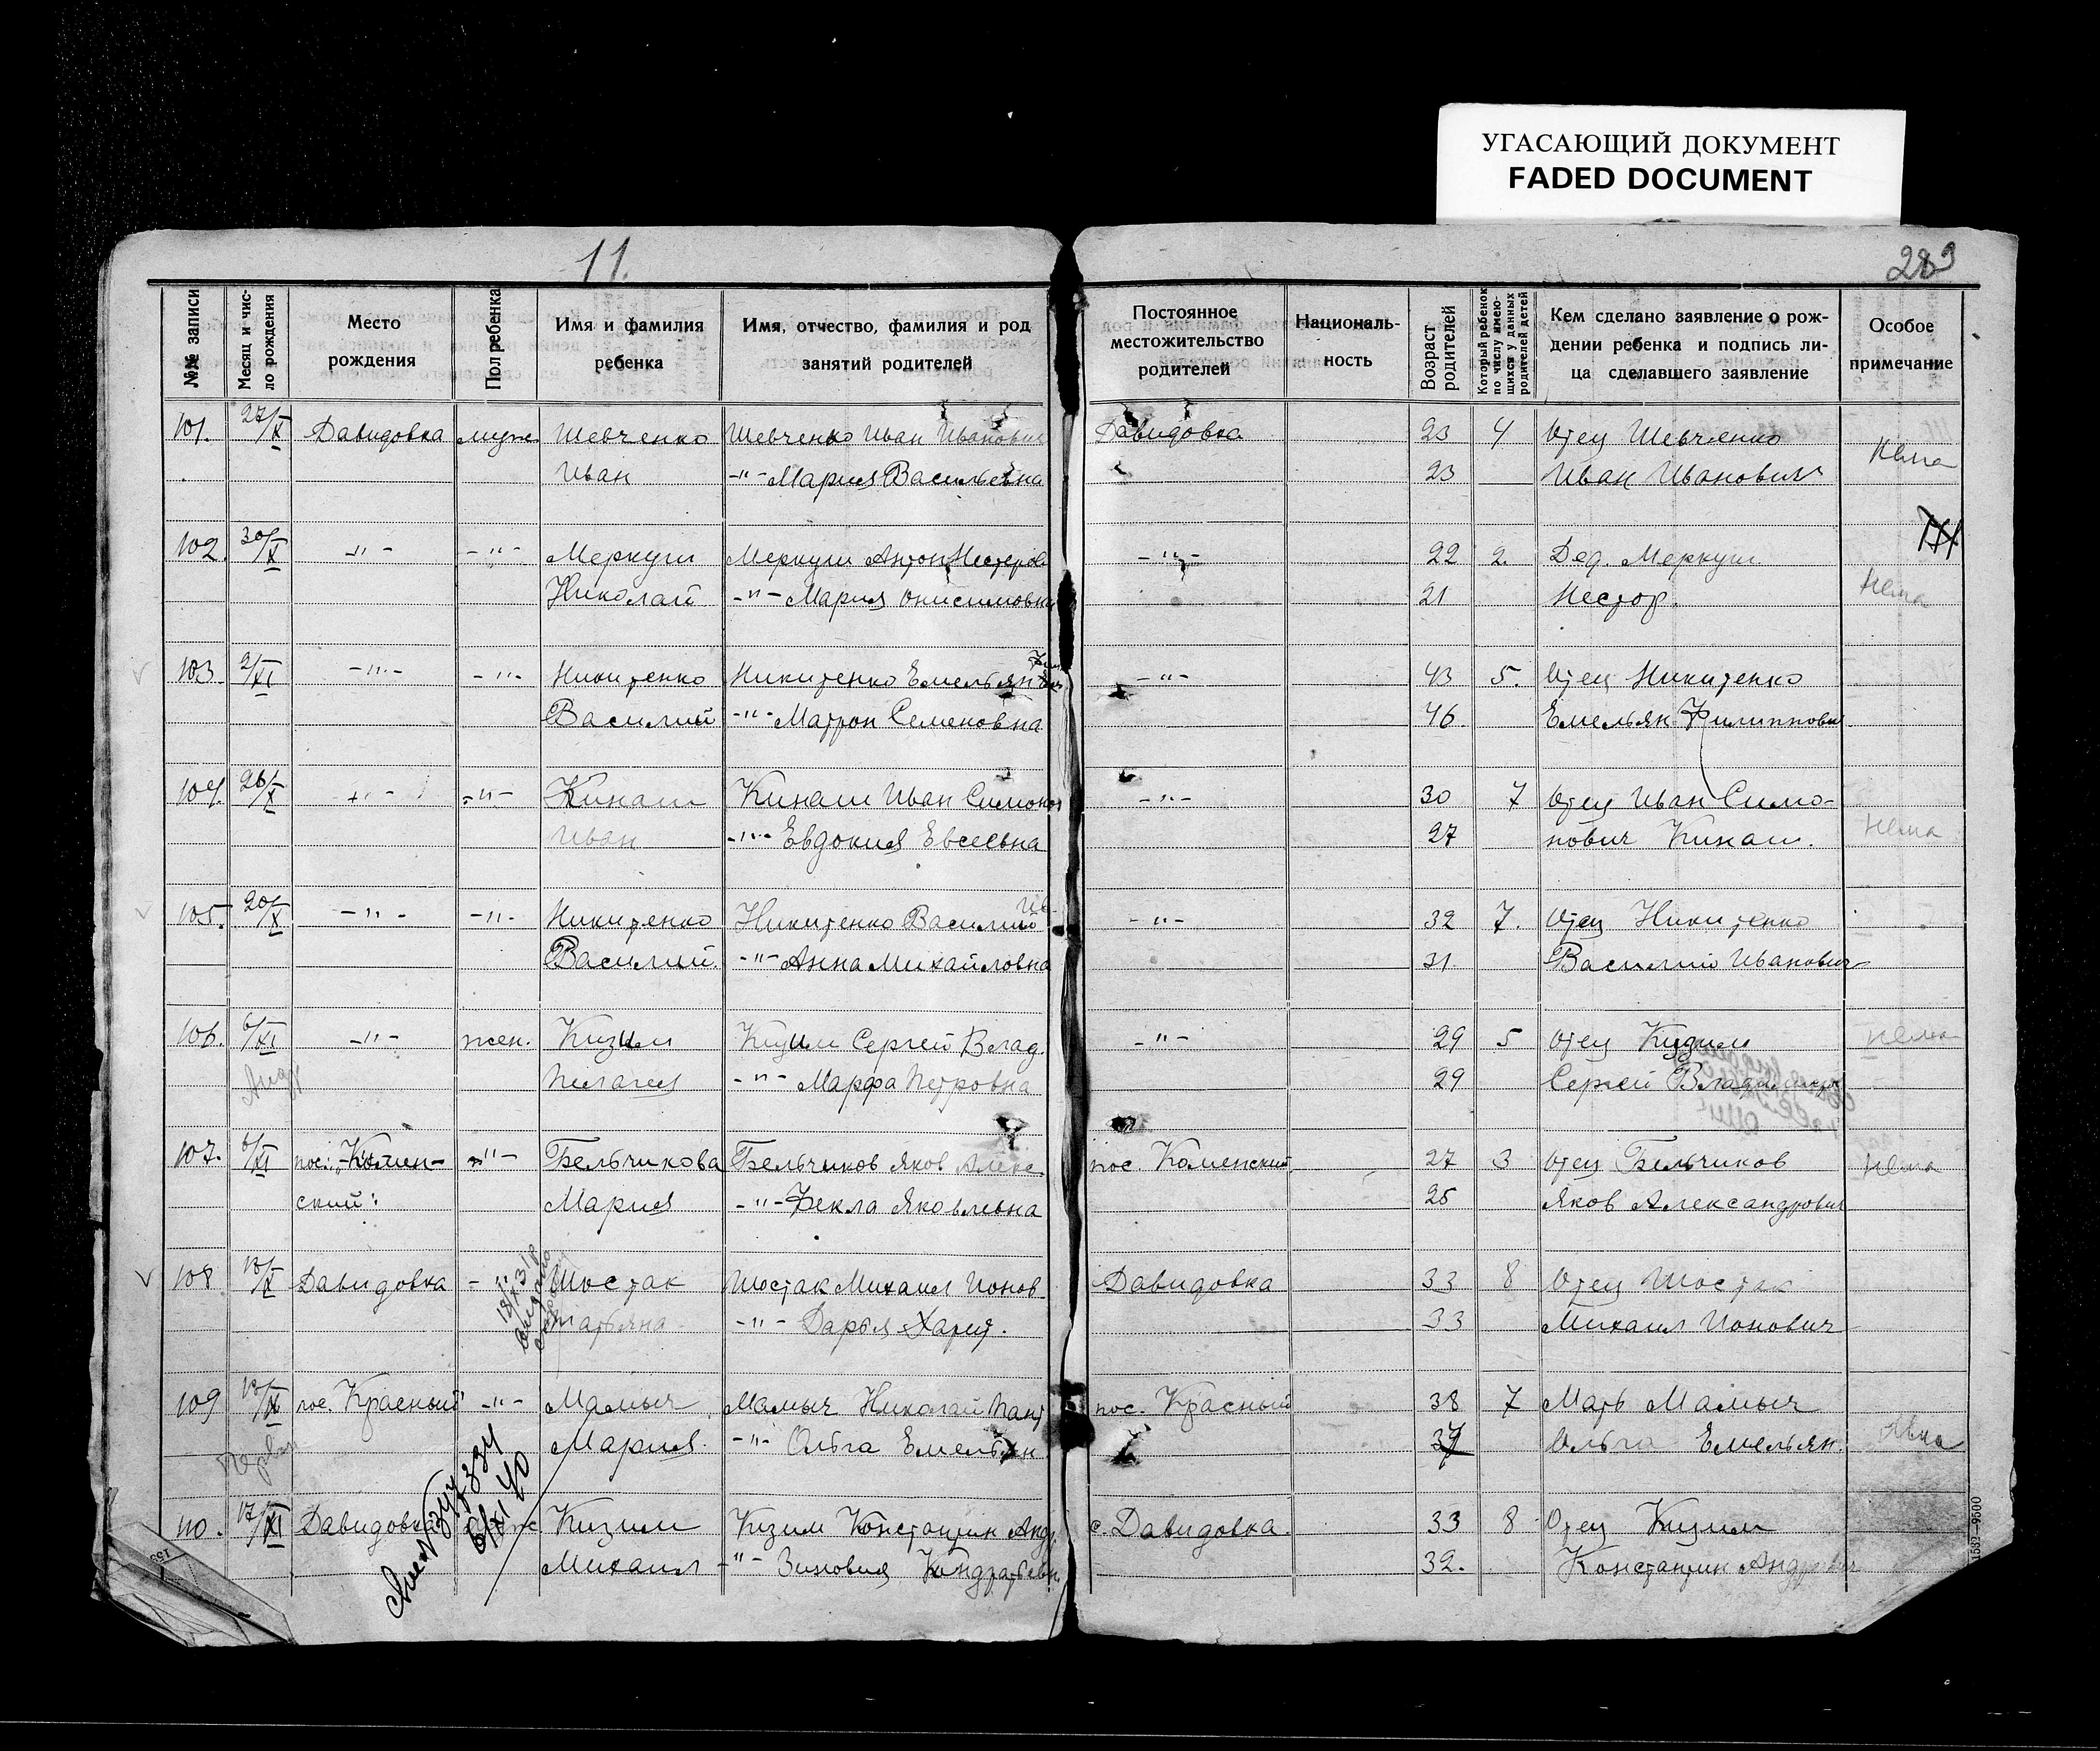 УГАСАЮЩИЙ ДОКУМЕНТ
FADED DOCUMENT
11.
283
№№ записи
Месяц и чис-
ло рождения
Место
рождения
Пол ребенка
Имя и фамилия
ребенка
Имя, отчество, фамилия и род
занятий родителей
Постоянное
местожительство
родителей
Националь-
ность
Возраст
родителей
Который ребенок
по числу имею-
щихся у данных
родителей детей
Кем сделано заявление о рож-
дении ребенка и подпись ли-
ца сделавшего заявление
Особое
примечание
101. 27/X Давидовка муж Шевченко Шевченко Иван Иванович Давидовка 23 4 Отец Шевченко
Иван -"- Мария Васильевна 23 Иван Иванович
Нема
102. 30/X -"- -"- Меркуш Меркуш Антон Нестеров -"- 22 2. Дед. Меркуш
Николай -"- Мария Онисимовна 21 Нестор.
Нема
103 2/XI -"- -"- Никитенко Никитенко Емельян -"- 43 5. Отец Никитенко
Василий -"- Матрон Семеновна 46. Емельян Филиппович
104. 26/X -"- -"- Кинаш Кинаш Иван Симонов -"- 30 7 Отец Иван Симо-
Иван -"- Евдокия Евсеевна 27 нович Кинаш.
Нема
105. 20/X -"- -"- Никитенко Никитенко Василий Ив. -"- 32 7. Отец Никитенко
Василий. -"- Анна Михайловна 31 Василий Иванович
106. 6/XI -"- жен. Кизим Кизим Сергей Влад. -"- 29 5 Отец Кизим
Нема
Пелагея -"- Марфа Петровна 29 Сергей Владимир
107. 6/XI пос. Камен- -"- Бельчикова Бельчиков Яков Алекс пос. Каменский 27 3 Отец Бельчиков
Нема
ский Мария -"- Фекла Яковлевна 25 Яков Александрович
108 13/X Давидовка -"- Шостак Шостак Михаил Ионов Давидовка 33 8 Отец Шостак
Татьяна -"- Дарья Харит. 33 Михаил Ионович
109 13/XI пос. Красный -"- Мамыч Мамыч Николай Пант пос. Красный 38 7 Мать Мамыч
Мария. -"- Ольга Емельян 37 Ольга Емельян.
Нема
110. 17/XI Давидовка Кизим Кизим Константин Анд. с. Давидовка. 33 8 Отец Кизим
Михаил -"- Зиновия Кондратьевн 32. Константин Андреевич
6/XI 40
1532—9500